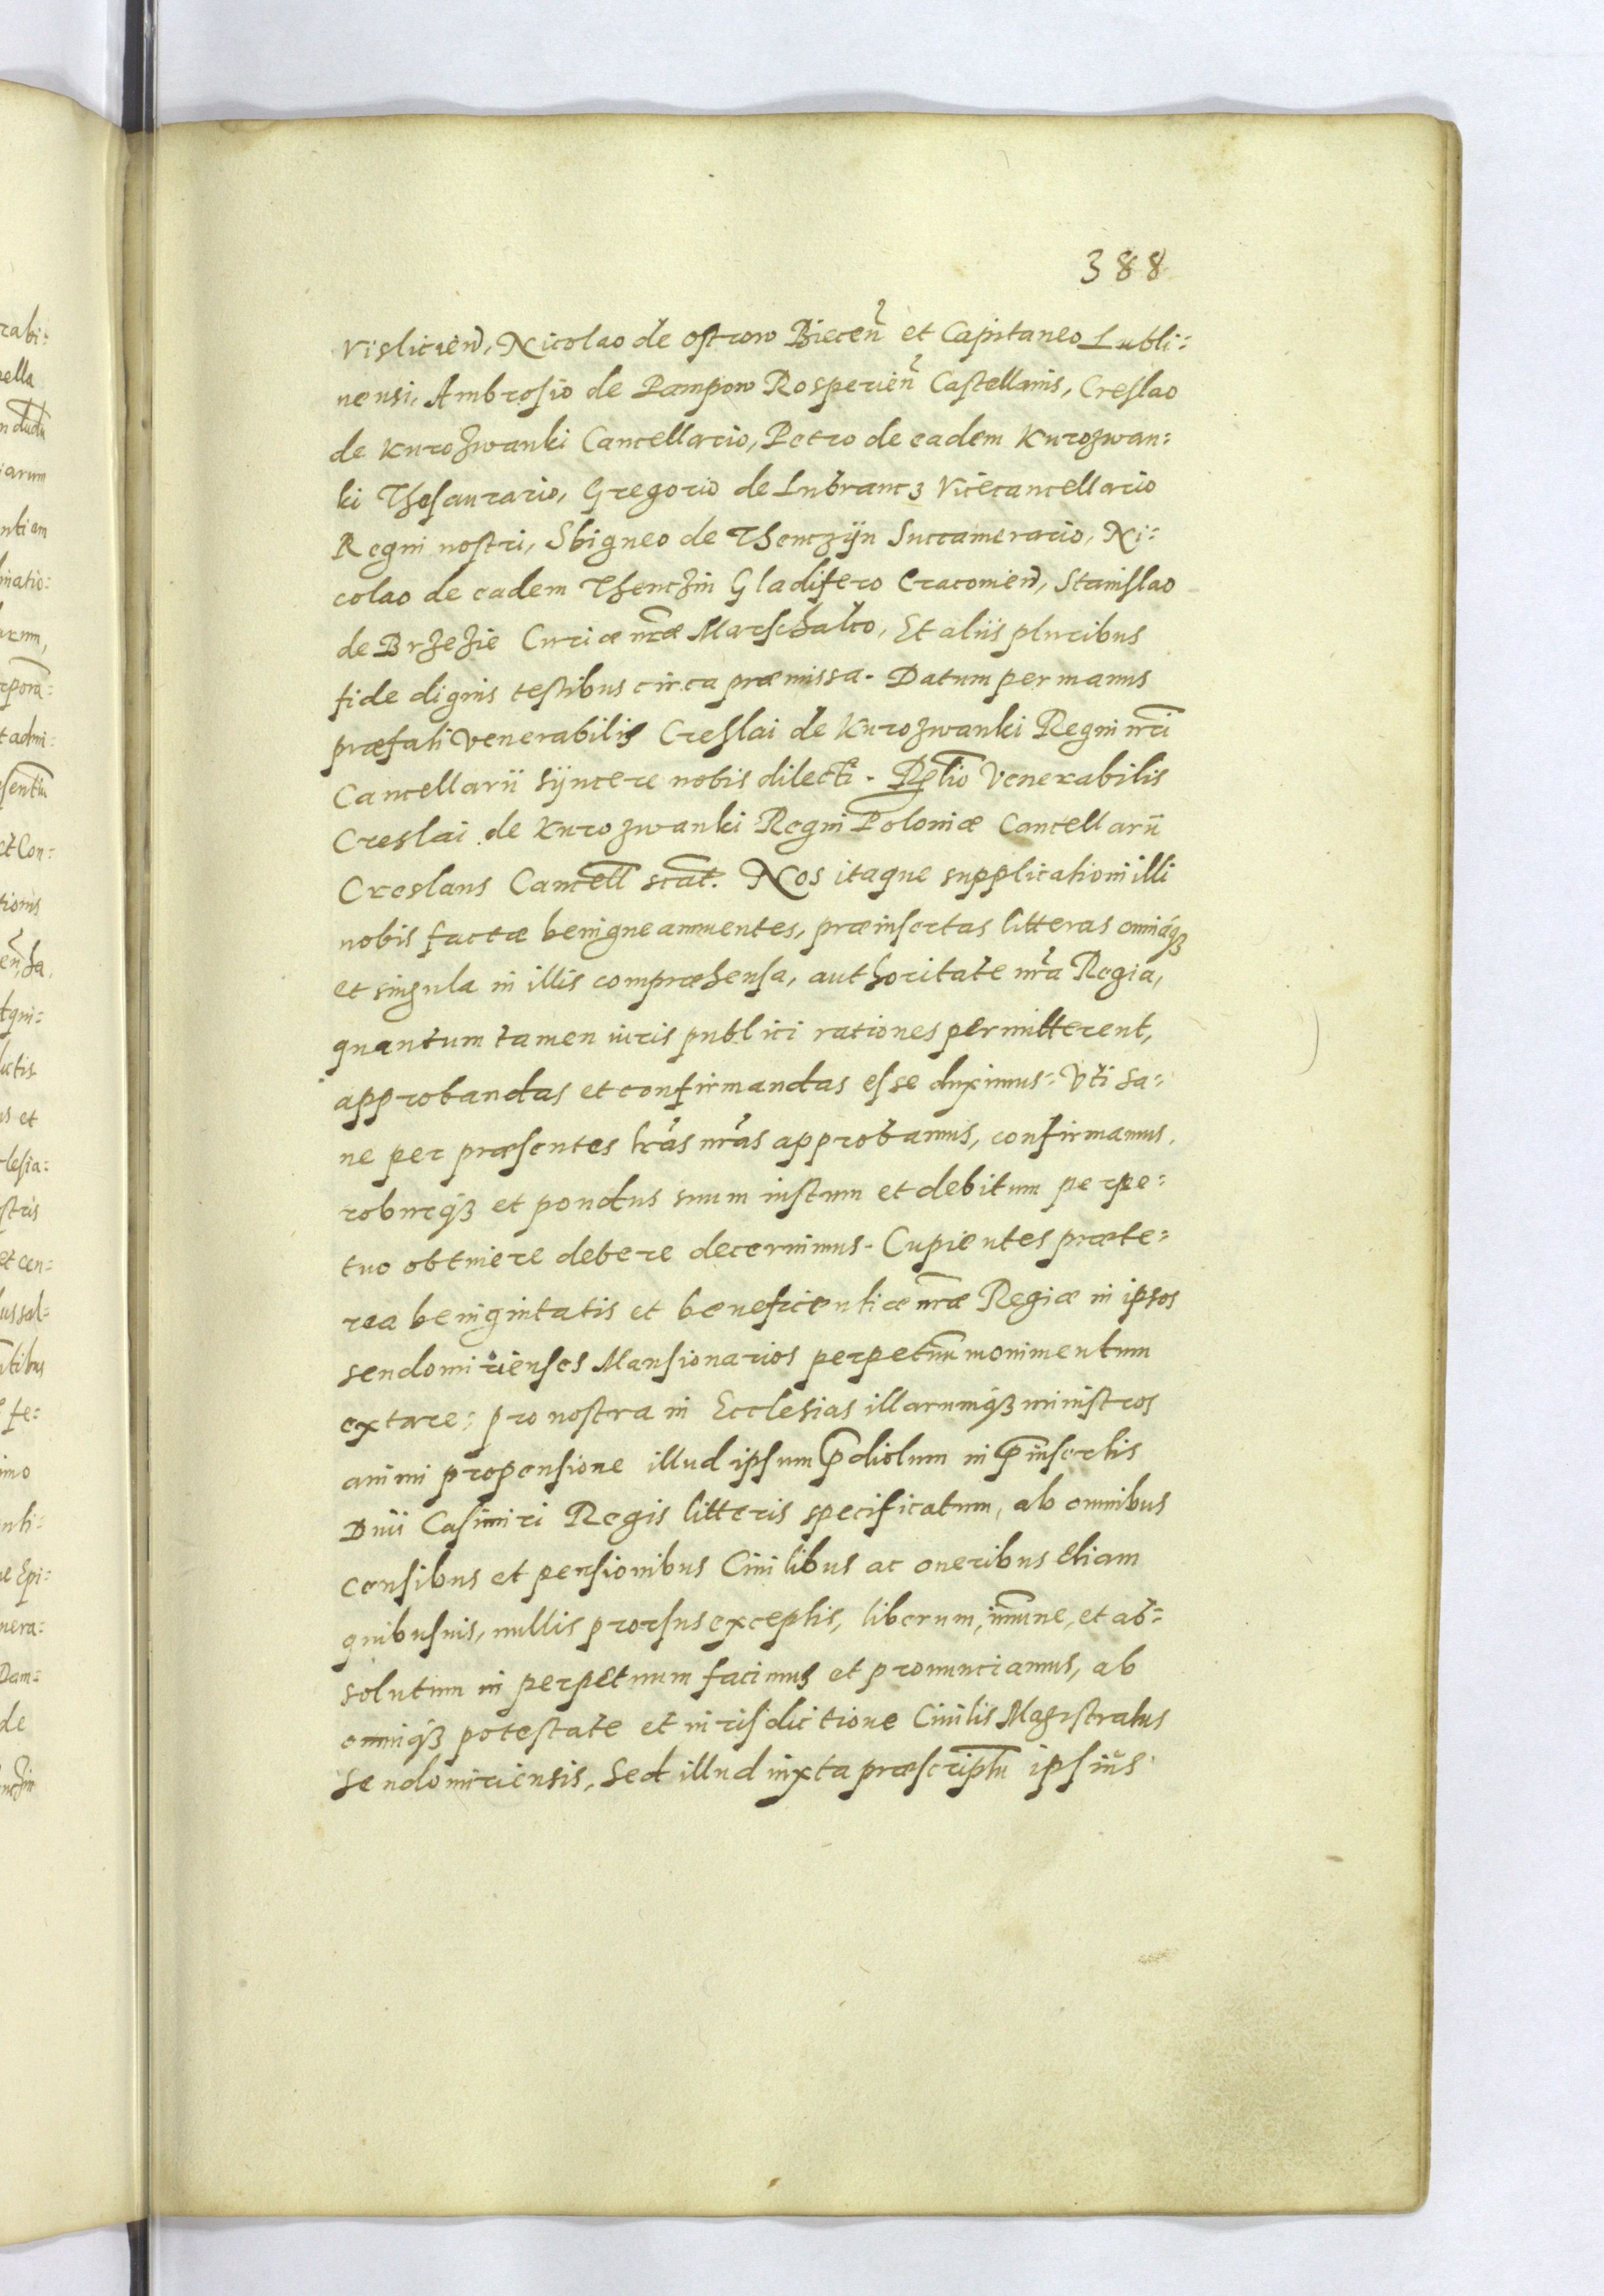 388
Visliciēn, Nicolao de ostrow Biecen̄ et Capitaneo Lubli:
nensi, Ambrosio de Pampow Rosperien̄ Castellanis, Creslao
de Kurozwanki Cancellario, Petro de eadem Kurozwan:
ki Thesaurario, Gregorio de Lubrancz Vicecancellario
Regni nostri, Sbigneo de Thenczÿn Succamerario, Ni:
colao de eadem Thenczin Gladifero Cracovien̄, Stanislao
de Brzezie Curiæ nr̄æ Marschalco, Et aliis pluribus
fide dignis testibus circa præmissa. Datum per manus
præfati Venerabilis Creslai de Kurozwanki Regni nr̄i
Cancellarii sÿncere nobis dilecti. Rēltio Venerabilis
Creslai de Kurozwanki Regni Poloniæ Cancellarii
Creslaus Cancell̄ scāt. Nos itaque supplicationi illi
nobis factæ benigne annuentes, præinsertas litteras omniáq3
et singula in illis compræhensa, authoritate nr̄a Regia,
quantum tamen iuris publici rationes permitterent,
approbandas et confirmandas esse duximus: Vti sa:
ne per præsentes lr̄as nr̄as approbamus, confirmamus,
roburq3 et pondus suum iustum et debitum perpe:
tuo obtinere debere decernimus. Cupientes præte:
rea benignitatis et beneficentiæ nr̄æ Regiæ in ipsos
sendomirienses Mansionarios perpetuum monimentum
extare: pro nostra in Ecclesias illarumq3 ministros
animi propensione illud ipsum p̄diolum in p̄insertis
Dnii Casimiri Regis litteris specificatum, ab omnibus
censibus et pensionibus Civilibus ac oneribus etiam
quibusuis, nullis prorsus exceptis, liberum, im̄une, et ab:
solutum in perpetuum facimus et pronunciamus, ab
omniq3 potestate et iurisdictione Civilis Magistratus
Sendomiriensis, Sed illud iuxta præscriptū ipsius